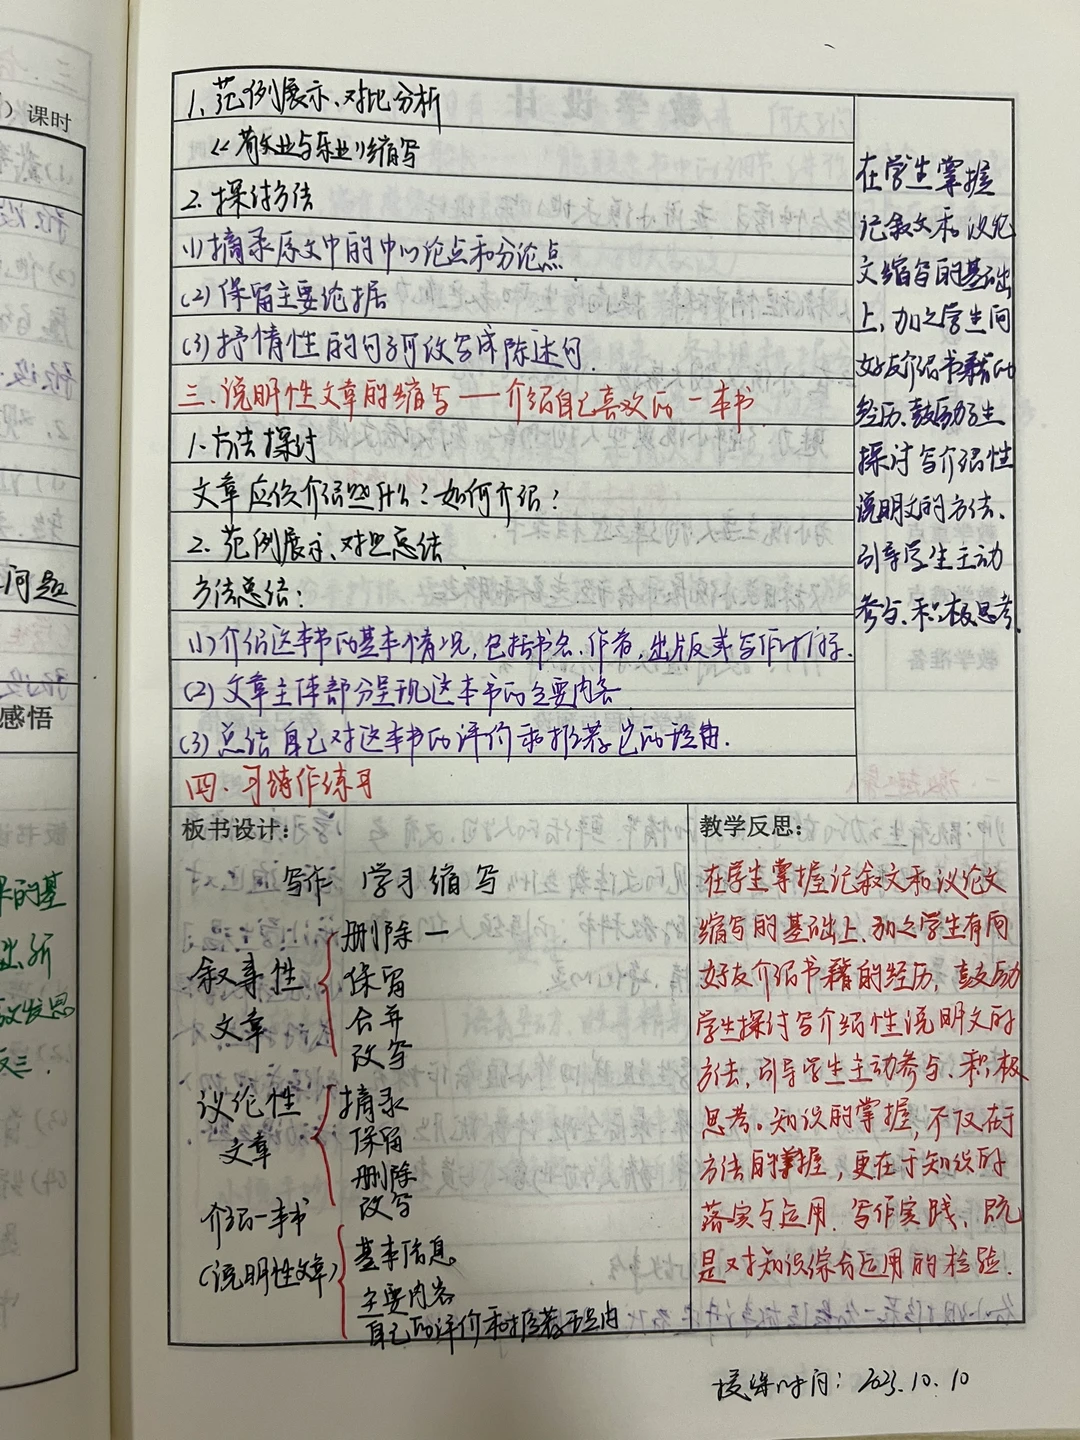 ) 课时
问题
感悟
的基
1、范例展示、对比分析
《敬业与乐业》缩写
2、探讨方法
(1)摘录原文中的中心论点和分论点.
(2)保留主要论据
(3)抒情性的句子可改写成陈述句.
三、说明性文章的缩写——介绍自己喜欢的一本书
1、方法探讨
文章应该介绍些什么?如何介绍?
2、范例展示、对照总结
方法总结:
(1)介绍这本书的基本情况,包括书名、作者、出版或写作时间等.
(2)文章主体部分呈现这本书的主要内容
(3)总结自己对这本书的评价和推荐它的理由.
四、习作练习
在学生掌握
记叙文和议论
文缩写的基础
上,加之学生向
好友介绍书籍的
经历、鼓励学生
探讨写介绍性
说明文的方法、
引导学生主动
参与、积极思考.
板书设计:
写作 学习缩写
叙事性
文章
删除
保留
合并
改写
议论性
文章
摘录
保留
删除
改写
介绍一本书
(说明性文章)
基本信息
主要内容
自己的评价和推荐理由
教学反思:
在学生掌握记叙文和议论文
缩写的基础上、加之学生有向
好友介绍书籍的经历,鼓励
学生探讨写介绍性说明文的
方法,引导学生主动参与、积极
思考。知识的掌握,不仅在于
方法的掌握,更在于知识的
落实与运用、写作实践、既
是对知识综合运用的检验.
授课时间:2023.10.10